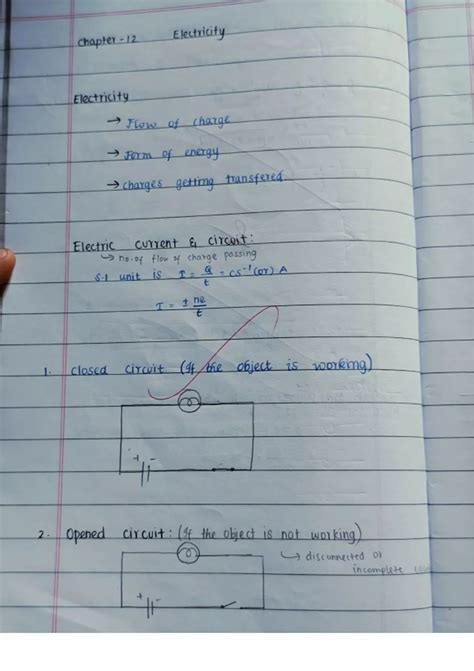 Chapter - 12 Electricity
Electricity
→ Flow of charge
→ Form of energy
→ charges getting transfered.
Electric current & circuit:
↳ no. of flow of charge passing
S.I unit is I = Q/t = CS⁻¹ (or) A
I = ± ne/t
1. closed circuit (If the object is working)
+ -
2. Opened circuit: (If the object is not working)
↳ disconnected or
incomplete
+ -